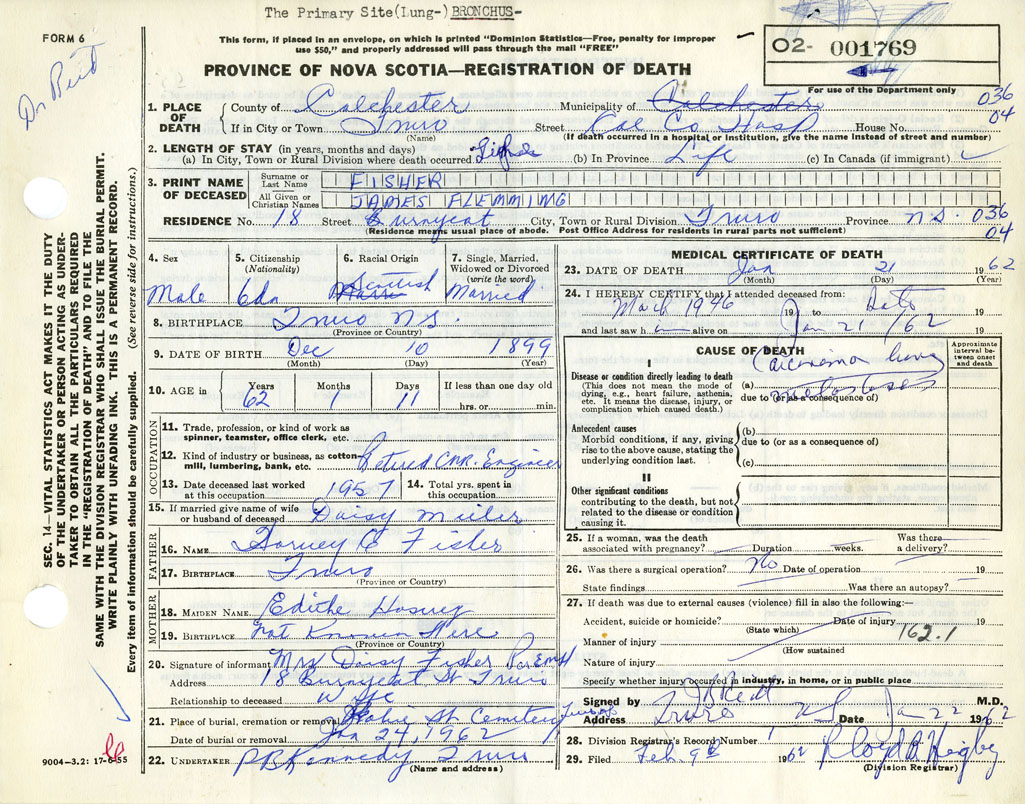 The Primary Site(Lung-) BRONCHUS-
FORM 6
This form, if placed in an envelope, on which is printed "Dominion Statistics—Free, penalty for improper
use $50," and properly addressed will pass through the mail "FREE"
O2- 001769
For use of the Department only
PROVINCE OF NOVA SCOTIA—REGISTRATION OF DEATH
036
04
1. PLACE OF DEATH County of Colchester Municipality of Colchester
If in City or Town Truro Street Col Co Hosp House No.
(Name) (If death occurred in a hospital or institution, give the name instead of street and number)
2. LENGTH OF STAY (in years, months and days)
(a) In City, Town or Rural Division where death occurred. (b) In Province Life (c) In Canada (if immigrant)
3. PRINT NAME OF DECEASED Surname or Last Name FISHER
All Given or Christian Names JAMES FLEMMING
RESIDENCE No. 18 Street Burnyeat City, Town or Rural Division Truro Province N.S. 036
04
(Residence means usual place of abode. Post Office Address for residents in rural parts not sufficient)
4. Sex Male
5. Citizenship (Nationality) Cdn
6. Racial Origin Scottish
7. Single, Married, Widowed or Divorced (write the word) Married
8. BIRTHPLACE Truro N.S.
(Province or Country)
9. DATE OF BIRTH Dec 10 1899
(Month) (Day) (Year)
10. AGE in Years 62 Months 1 Days 11 If less than one day old
hrs. or min.
OCCUPATION
11. Trade, profession, or kind of work as
spinner, teamster, office clerk, etc.
12. Kind of industry or business, as cotton-
mill, lumbering, bank, etc. Retired CNR. Engineer
13. Date deceased last worked at this occupation 1957 14. Total yrs. spent in this occupation
15. If married give name of wife
or husband of deceased Daisy Miller
FATHER
16. NAME Harvey C Fisher
17. BIRTHPLACE Truro
(Province or Country)
MOTHER
18. MAIDEN NAME Edithe
19. BIRTHPLACE Not Known Here
(Province or Country)
20. Signature of informant Mrs Daisy Fisher Per EMH
Address 18 Burnyeat St Truro
Relationship to deceased Wife
21. Place of burial, cremation or removal Robie St. Cemetery Truro
Date of burial or removal Jan 24, 1962
22. UNDERTAKER P B Kennedy Truro
(Name and address)
MEDICAL CERTIFICATE OF DEATH
23. DATE OF DEATH Jan 21 1962
(Month) (Day) (Year)
24. I HEREBY CERTIFY that I attended deceased from:
March 1946 19 to Date
and last saw h alive on Jan 21 /62 19
CAUSE OF DEATH
Approximate interval be-tween onset and death
I
Disease or condition directly leading to death
(This does not mean the mode of
dying, e.g., heart failure, asthenia,
etc. It means the disease, injury, or
complication which caused death.)
(a) Carcinoma lung
metastases
due to (or as a consequence of)
Antecedent causes
Morbid conditions, if any, giving
rise to the above cause, stating the
underlying condition last.
(b)
due to (or as a consequence of)
(c)
II
Other significant conditions
contributing to the death, but not
related to the disease or condition
causing it.
25. If a woman, was the death
associated with pregnancy? Duration weeks. Was there
a delivery?
26. Was there a surgical operation? No Date of operation 19
State findings Was there an autopsy?
27. If death was due to external causes (violence) fill in also the following:—
Accident, suicide or homicide? Date of injury 19
(State which)
162.1
Manner of injury
(How sustained
Nature of injury
Specify whether injury occurred in industry, in home, or in public place
Signed by M.D.
Address Truro NS Date Jan 22 1962
28. Division Registrar's Record Number 1
29. Filed Feb. 9th 1962 Lloyd
(Division Registrar)
SEC. 14—VITAL STATISTICS ACT MAKES IT THE DUTY
OF THE UNDERTAKER OR PERSON ACTING AS UNDER-
TAKER TO OBTAIN ALL THE PARTICULARS REQUIRED
IN THE "REGISTRATION OF DEATH" AND TO FILE THE
SAME WITH THE DIVISION REGISTRAR WHO SHALL ISSUE THE BURIAL PERMIT.
WRITE PLAINLY WITH UNFADING INK. THIS IS A PERMANENT RECORD.
Every item of information should be carefully supplied. (See reverse side for instructions.)
9004-3.2: 17-6-55